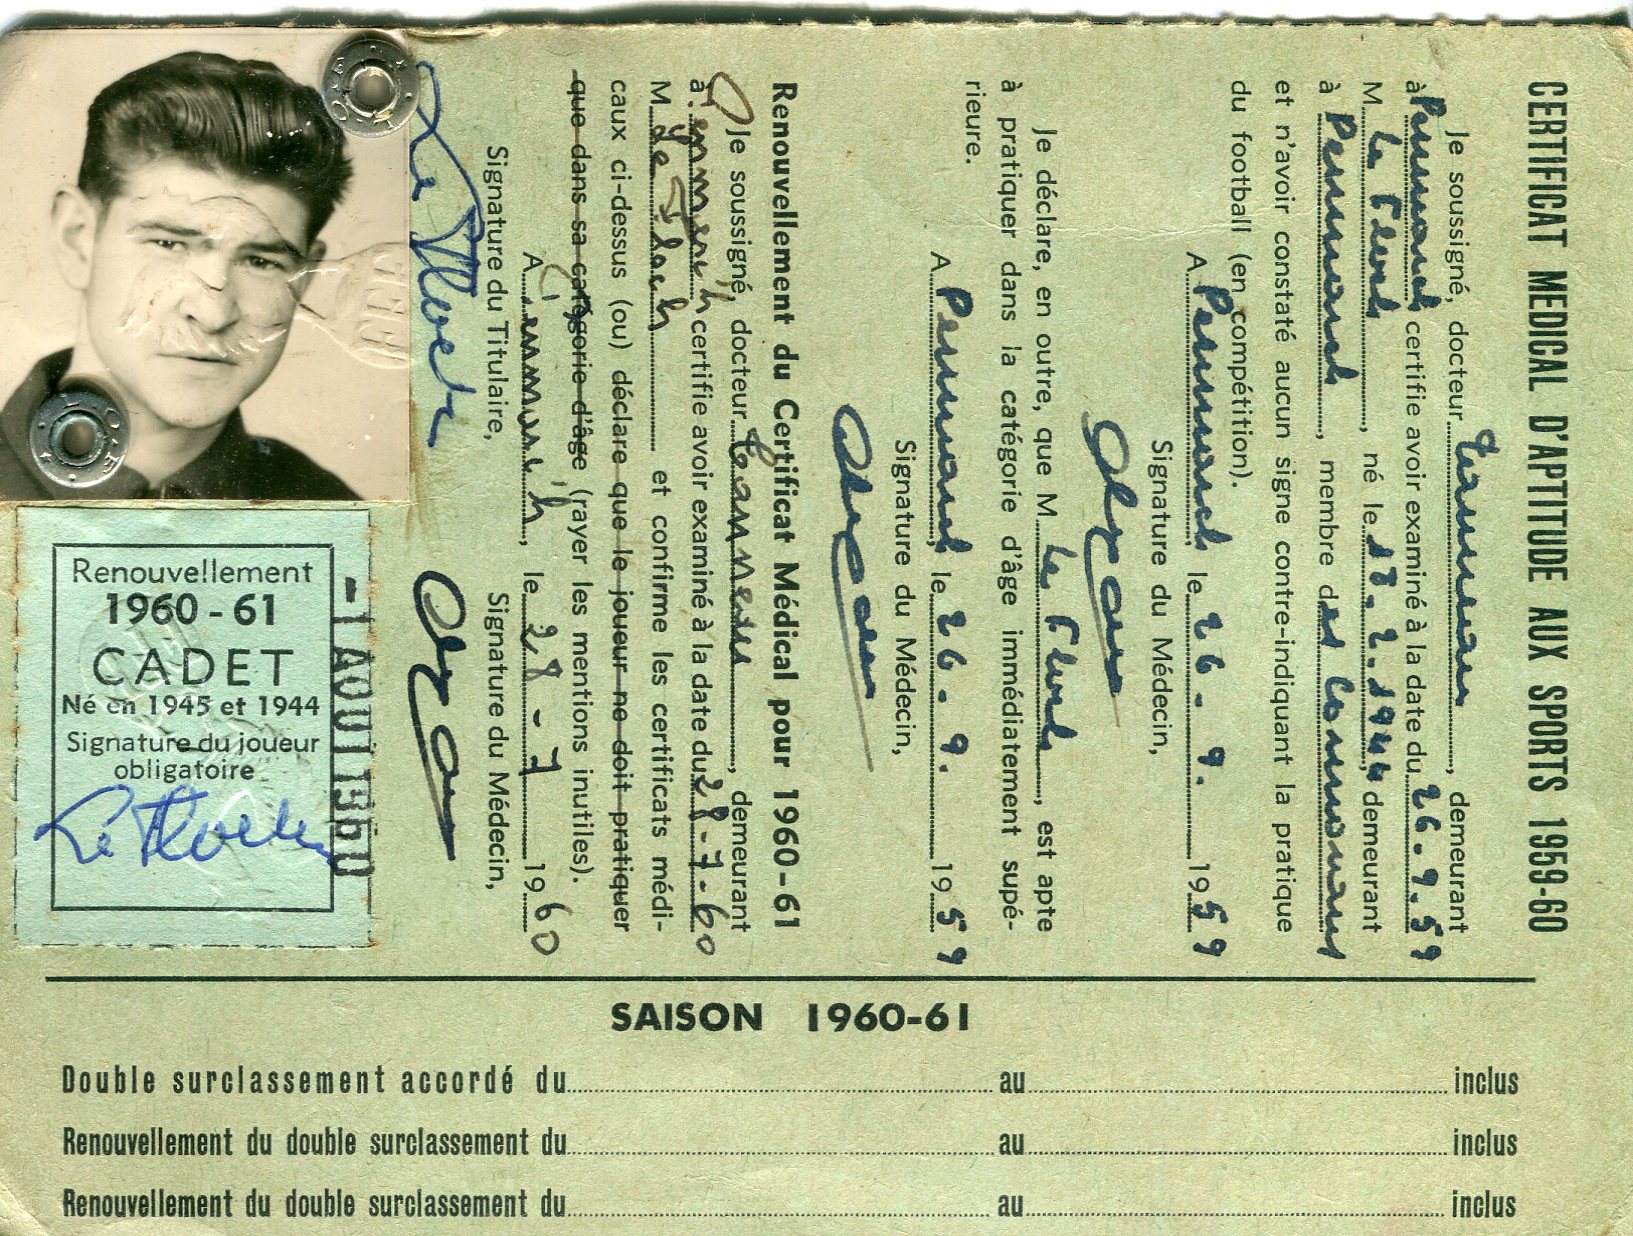 CERTIFICAT MEDICAL D'APTITUDE AUX SPORTS 1959-60
Je soussigné, docteur, demeurant
à Penmarch certifie avoir examiné à la date du 26.9.59
M. Le Floch, né le 18.2.1944 demeurant
à Penmarch, membre des Cormorans
et n'avoir constaté aucun signe contre-indiquant la pratique
du football (en compétition).
A Penmarch, le 26.9. 1959
Signature du Médecin,
Je déclare, en outre, que M. Le Floch, est apte
à pratiquer dans la catégorie d'âge immédiatement supé-
rieure.
A Penmarch, le 26.9. 1959
Signature du Médecin,
Renouvellement du Certificat Médical pour 1960-61
Je soussigné, docteur, demeurant
à Penmarc'h certifie avoir examiné à la date du 28-7-60
M. Le Floch et confirme les certificats médi-
caux ci-dessus (ou) déclare que le joueur ne doit pratiquer
que dans sa catégorie d'âge (rayer les mentions inutiles).
A Penmarc'h, le 28-7 1960
Signature du Titulaire, Signature du Médecin,
Le Floch
Renouvellement
1960-61
CADET
Né en 1945 et 1944
Signature du joueur
obligatoire
Le Floch
-1 AOUT 1960
SAISON 1960-61
Double surclassement accordé du au inclus
Renouvellement du double surclassement du au inclus
Renouvellement du double surclassement du au inclus